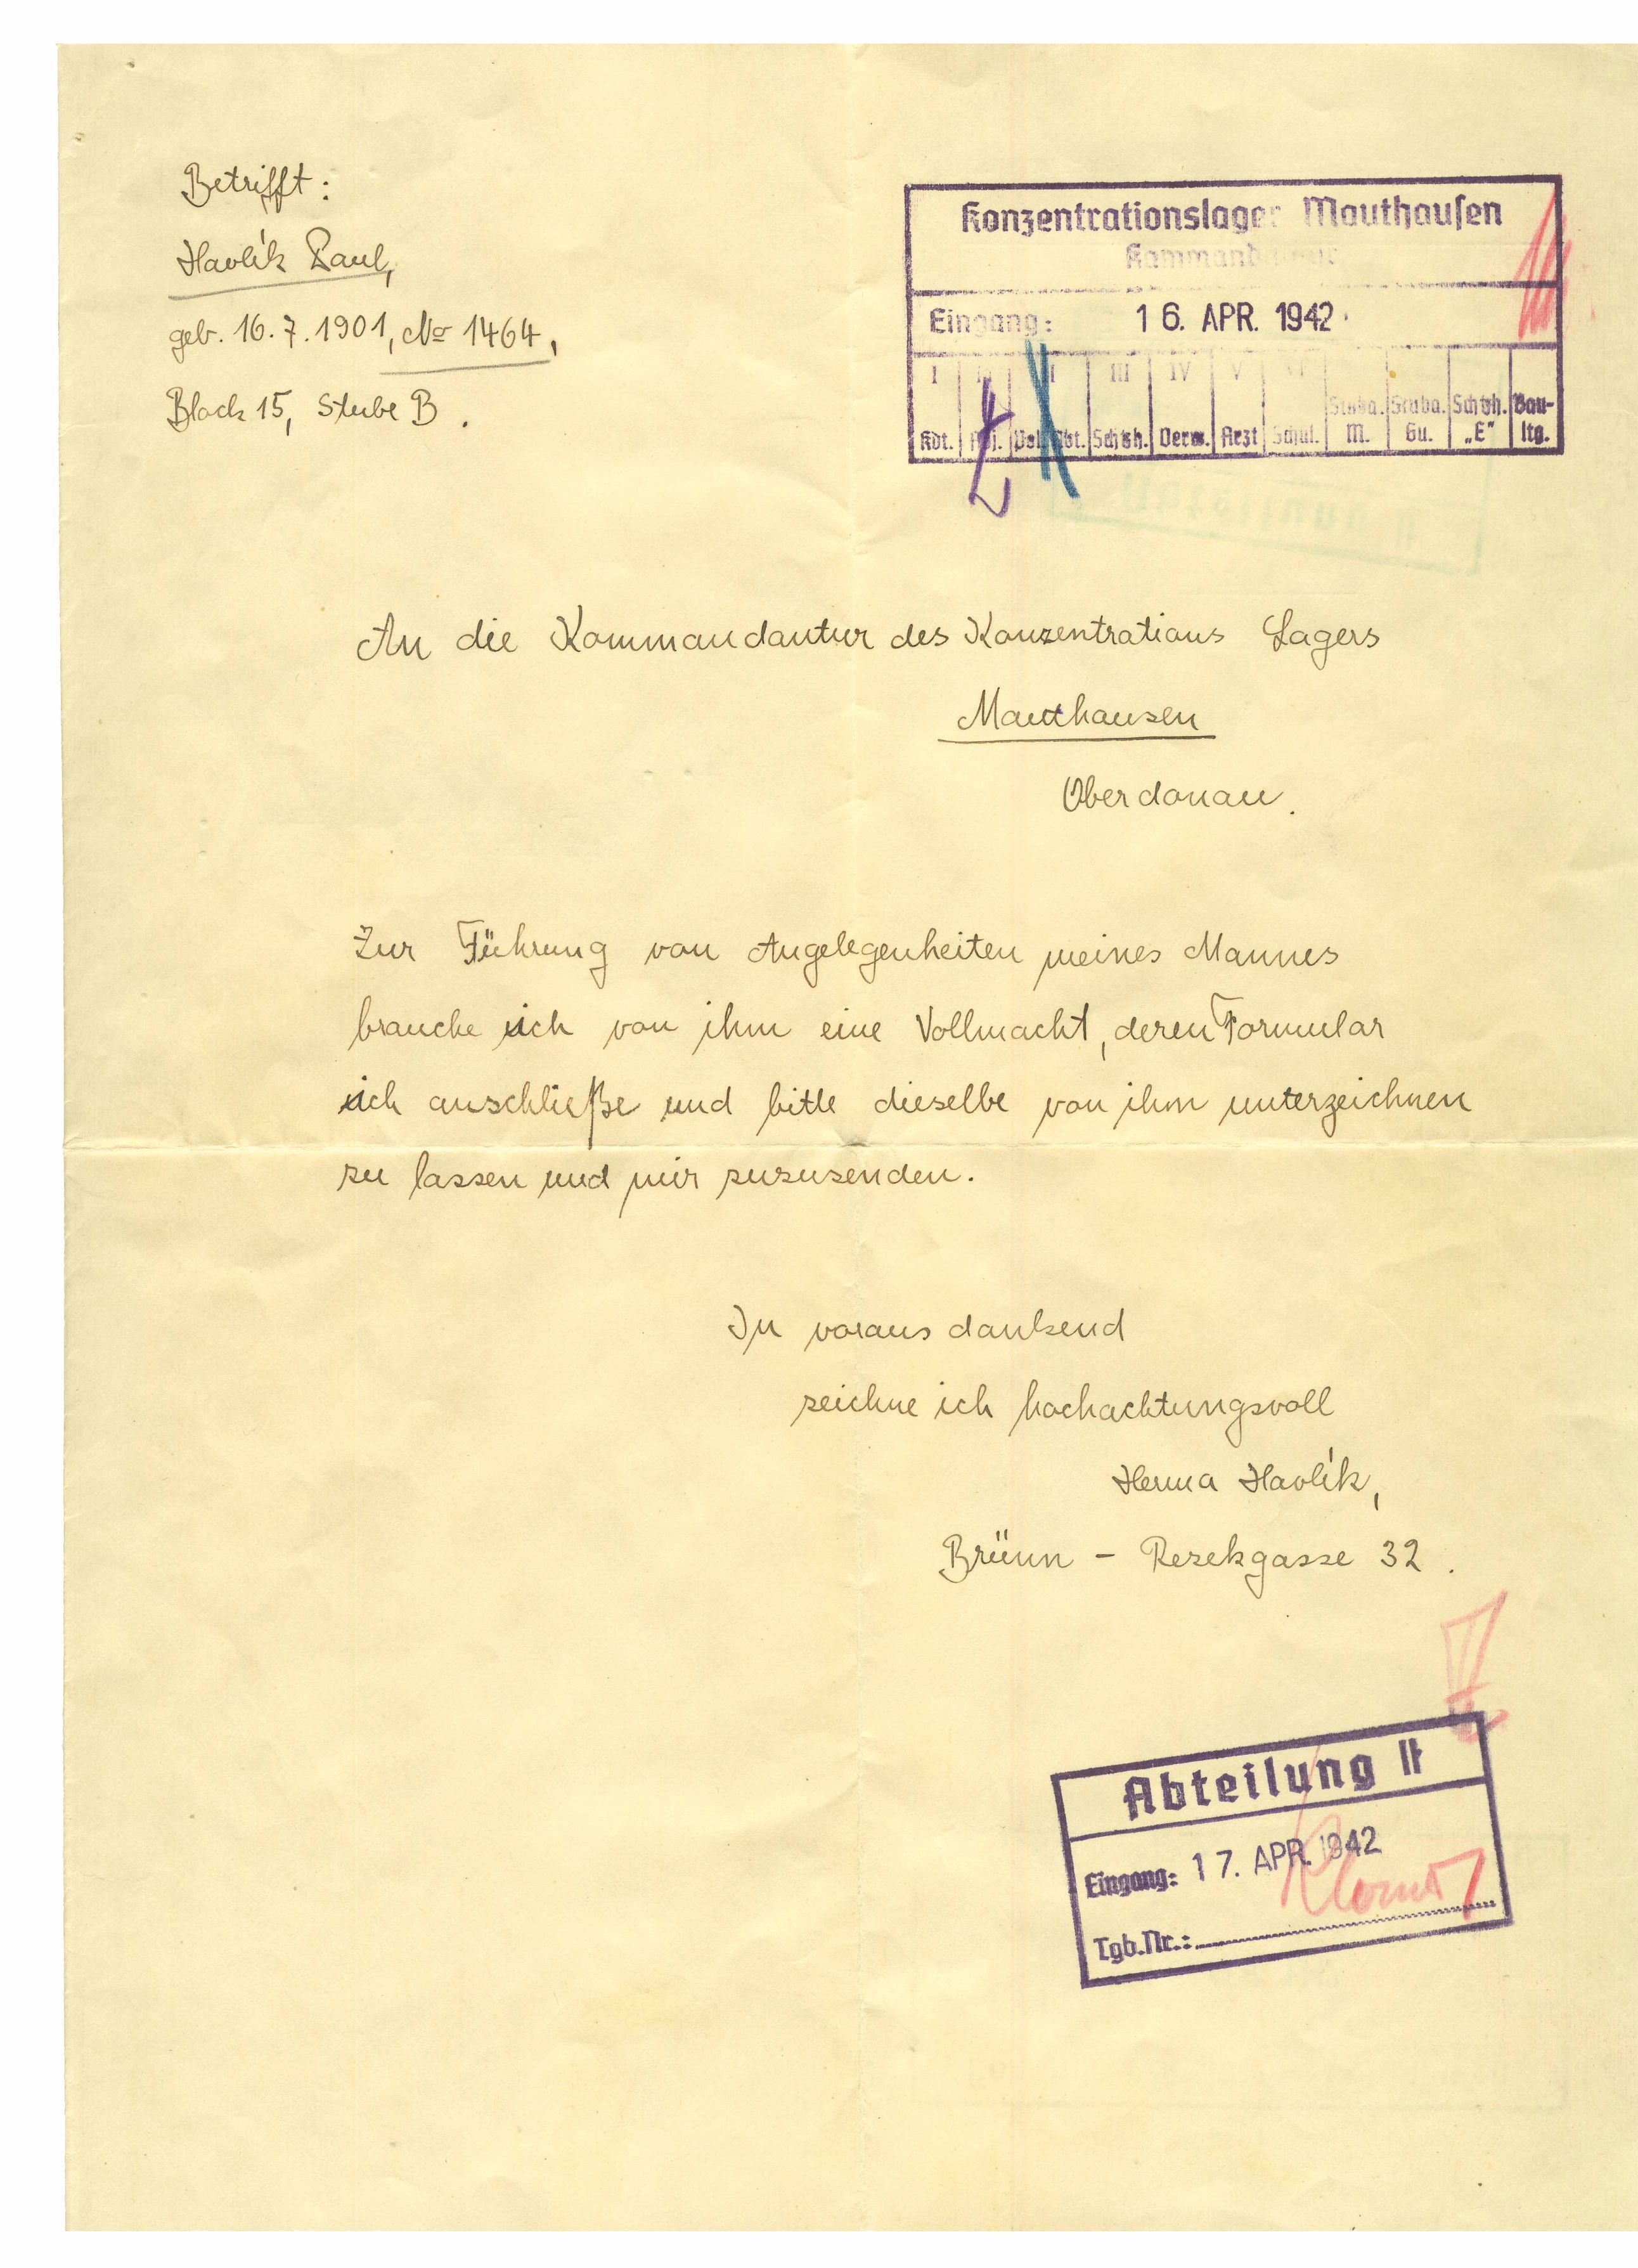 Betrifft:
Havlík Paul,
geb. 16.7.1901, No 1464,
Block 15, Stube B.
Konzentrationslager Mauthausen
Kommandantur
Eingang: 16. APR. 1942
I III IV V VI
Kdt. Adj. Pol. Abt. Schtzh. Verw. Arzt Schul. Stuba. M. Stuba. Gu. Schtzh. „E" Bau-ltg.
An die Kommandantur des Konzentrations Lagers
Mauthausen
Oberdonau.
Zur Führung von Angelegenheiten meines Mannes
brauche ich von ihm eine Vollmacht, deren Formular
ich anschließe und bitte dieselbe von ihm unterzeichnen
zu lassen und mir zuzusenden.
In voraus dankend
zeichne ich hochachtungsvoll
Herma Havlík,
Brünn – Rezekgasse 32.
Abteilung II
Eingang: 17. APR. 1942
Tgb.Nr.: